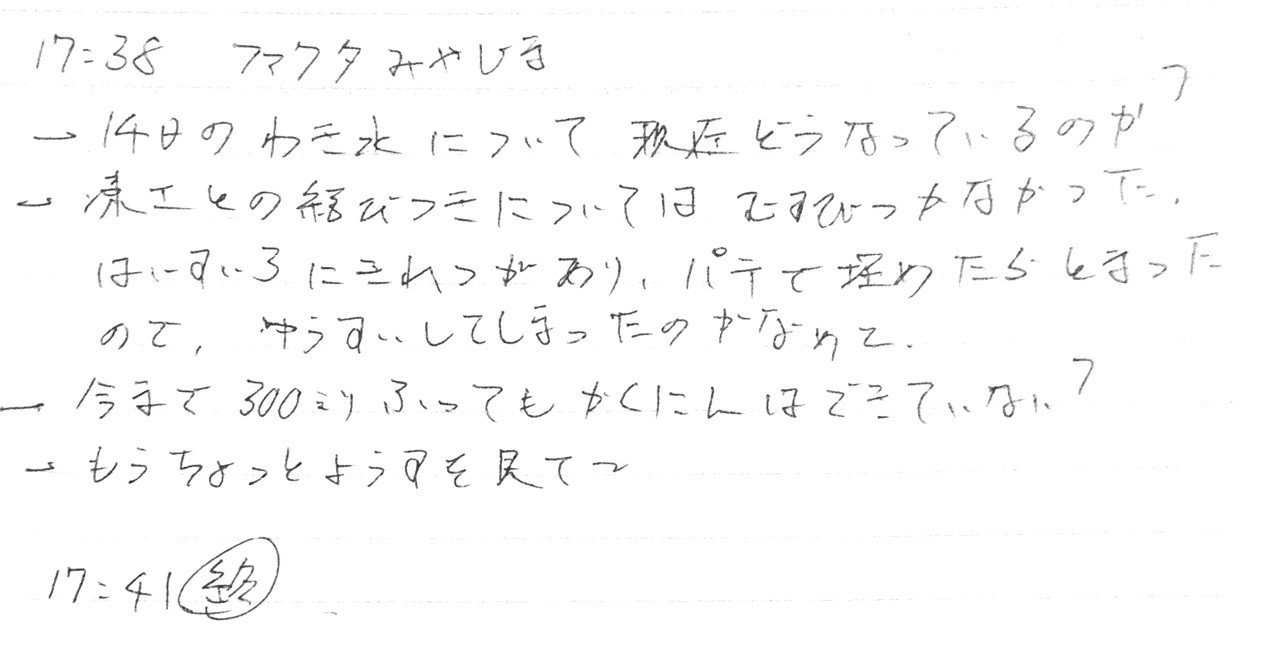 17:38 ファクタみやじま
→ 14日のわき水について 現在どうなっているのか?
→ 凍工との結びつきについては むすびつかなかった.
はいすいろにきれつがあり、パテで埋めたらとまった
ので, ゆうすいしてしまったのかなめて.
→ 今まで300ミリふってもかくにんはできていない?
→ もうちょっとようすを見て〜
17:41 終